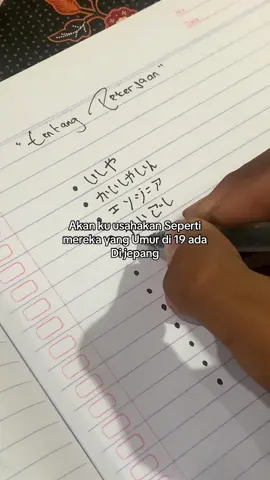 "tentang Pekerjaan"
• いしゃ
• かいしゃいん
• エンジニア
Akan ku usahakan Seperti
mereka yang Umur di 19 ada
Di jepang